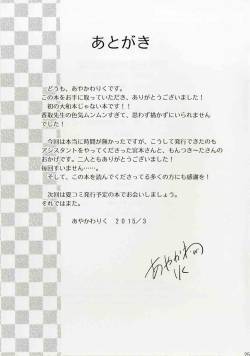 あとがき
どうも、あやかわりくです。
この本をお手に取っていただき、ありがとうございました！
初の大和本じゃない本です！！
香取先生の色気ムンムンすぎて、思わず描かずにいられませんでした！
今回は本当に時間が無かったですが、こうして発行できたのも
アシスタントをやってくださった宮本さんと、もんつきーたさんの
おかげです。二人ともありがとうございました！
毎回すいません……。
そして、この本を読んでくださってる多くの方にも感謝を！
次回は夏コミ発行予定の本でお会いしましょう。
それではまた。
あやかわりく　２０１５／３
あやかわ
りく